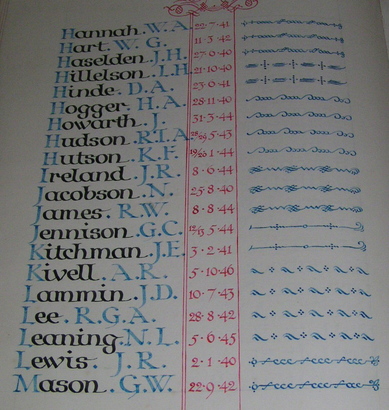 Hannah. W. A. 22·7·41
Hart. W. G. 11·3·42
Haselden. J. H. 27·0·40
Hillelson. L. H. 21·10·40
Hinde. D. A. 23·0·41
Hogger. H. A. 28·11·40
Howarth. J. 31·3·44
Hudson. R. I. A. 28/29·5·43
Hutson. K. F. 19/20·1·44
Ireland. J. R. 8·6·44
Jacobson. N. 25·8·40
James. R. W. 8·8·44
Jennison. G. C. 12/13·5·44
Kitchman. J. E. 3·2·41
Kivell. A. R. 5·10·46
Lammin. J. D. 10·7·43
Lee. R. G. A. 28·8·42
Leaning. N. L. 5·6·45
Lewis. J. R. 2·1·40
Mason. G. W. 22·9·42